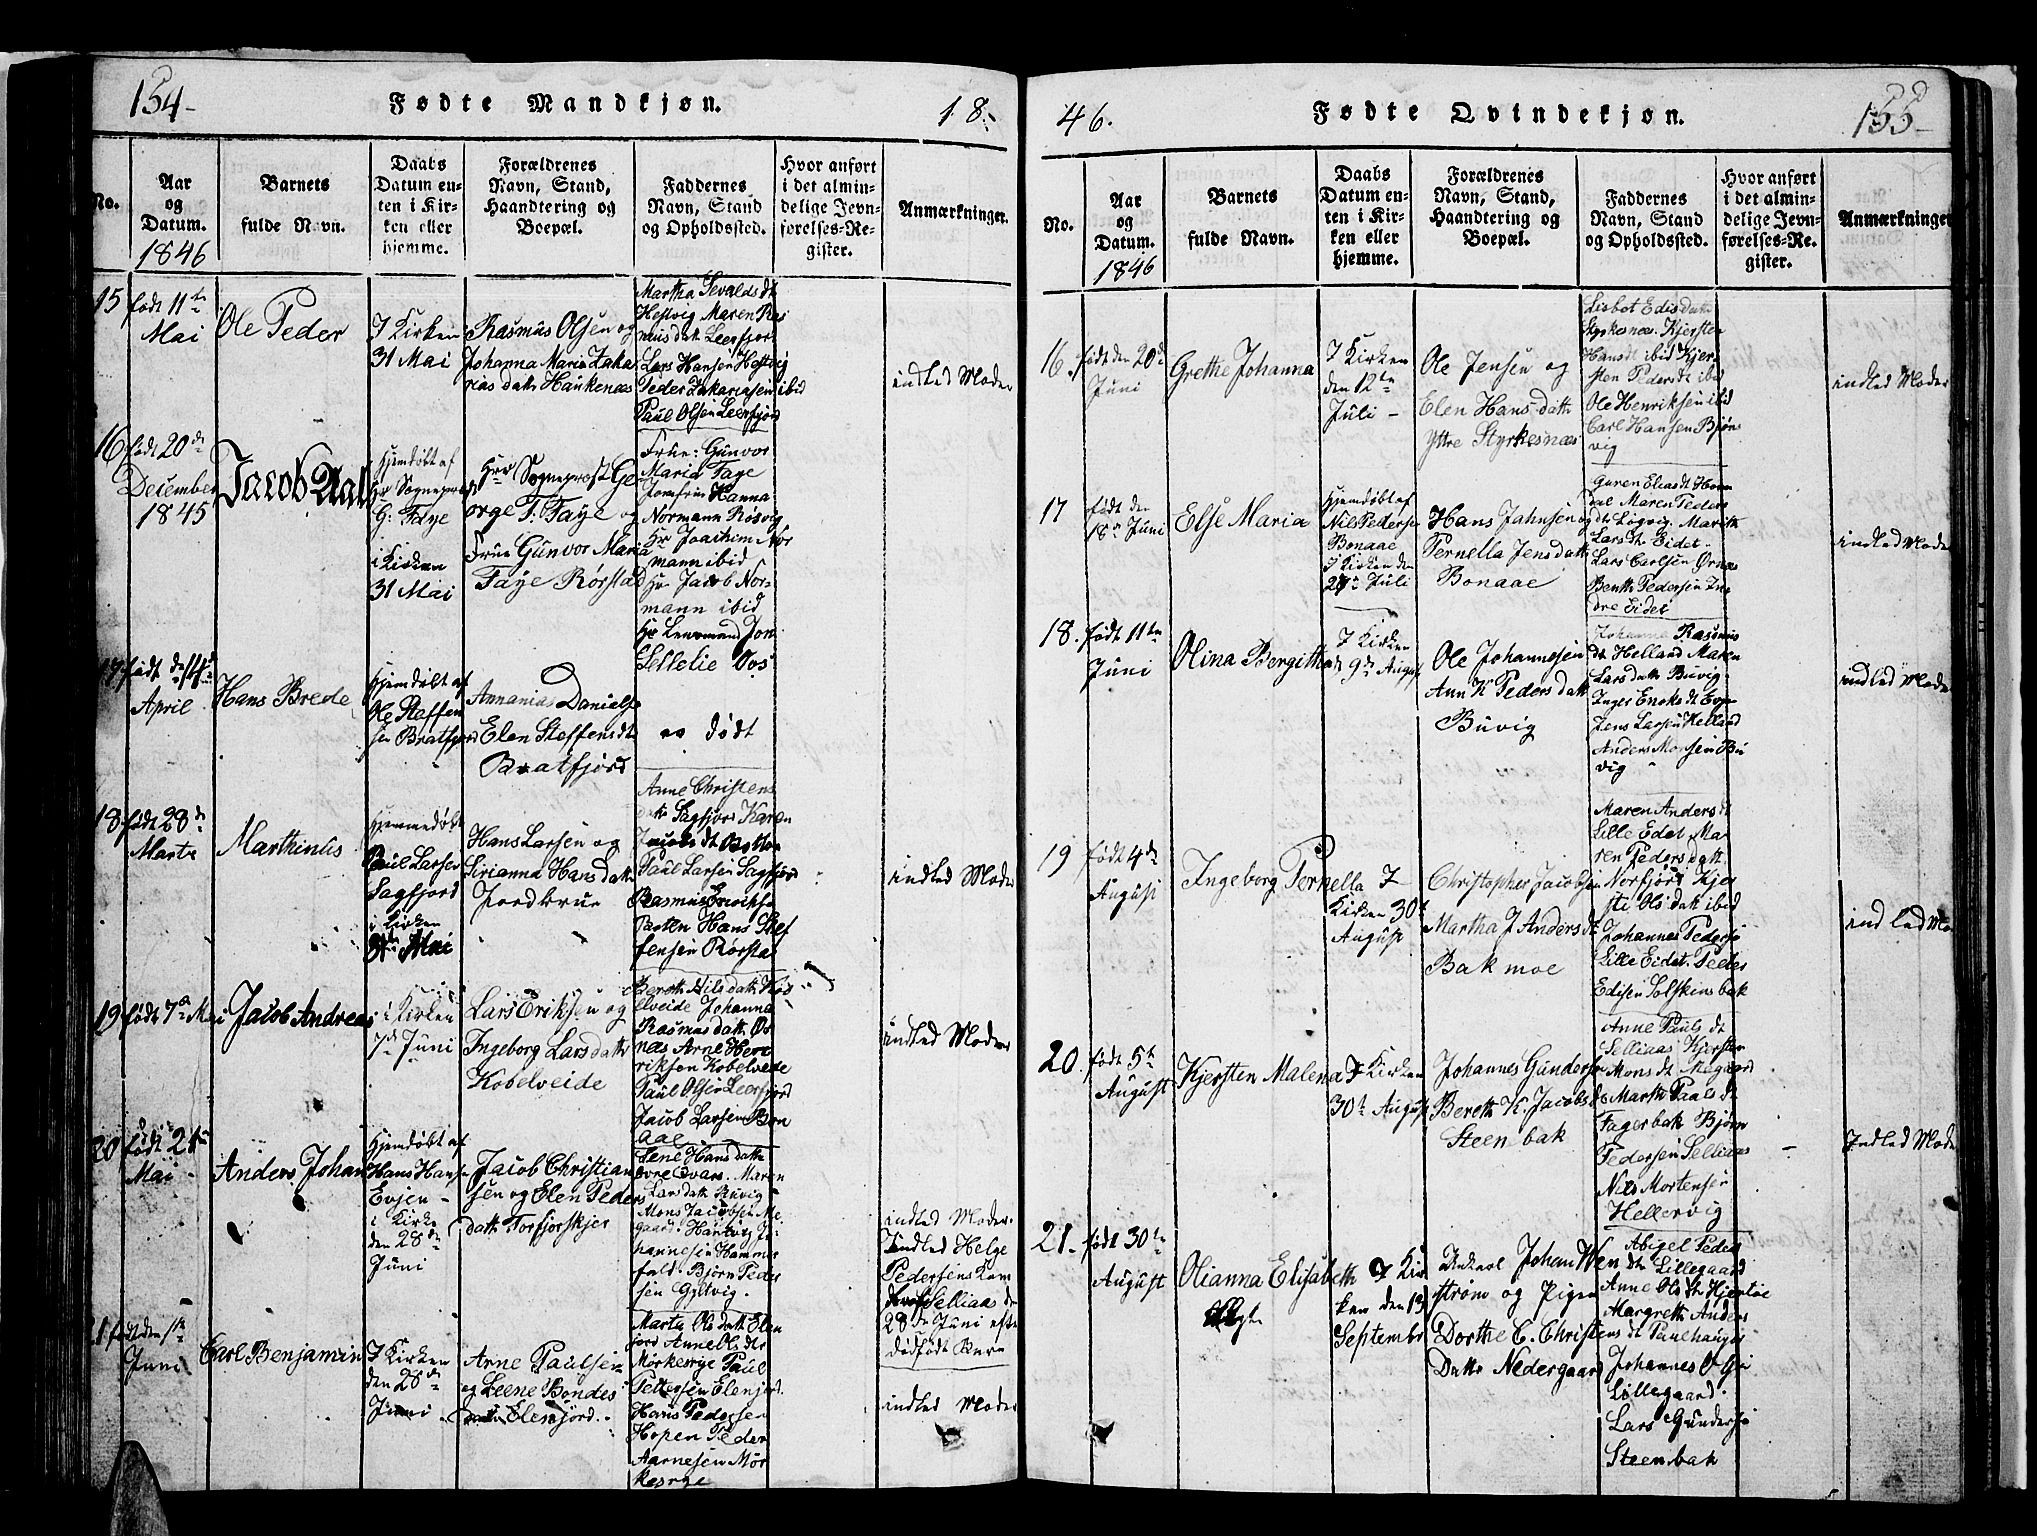 154-
Fødte Mandkjøn.
18-
No.
Aar
og
Datum.
1846
Barnets
fulde Navn.
Daabs
Datum en-
ten i Kir-
ken eller
hjemme.
Forældrenes
Navn, Stand,
Haandtering og
Boepæl.
Faddernes
Navn, Stand
og Opholdssted.
Hvor anført
i det almin-
delige Jevn-
førelses-Re-
gister.
Anmærkninger.
15
født 11te
Mai
Ole Peder
I Kirken
31 Mai
Rasmus Olsen og
Johanna Maria Zaka
rias datt Haukenæs
Martha Sevaldsdt
Hestvig Maren Ras
musdatt Leerfjor
Lars Hansen Hestvig
Peder Zakariasen ibid
Paul Olsen Leerfjord
indled Moder
16
født 20de
December
1845
Jacob Aall
Hjemdøbt af
Hr Sogneprest
G: Faye
i Kirken
31 Mai
Hrr Sogneprest Ge
orge T. Faye og
Frue Gunvor Maria
Faye Rørstad
Frue: Gunvor
Maria Faye
Jomfru Hanna
Normann Røsvig
Hr Joachim Nor
mann ibid
Hr Jacob Nor-
mann ibid
Hr Lensmand Jon
Sellelie Oos
17
født de 14de
April
Hans Brede
Hjemdøbt af
Ole Staffen
sen Bratfjord
Annanias Danielse
Elen Steffensdt
Bratfjord
er Født
18
født 28de
Marts
Marthinus
Hjemmedøbt
Paul Larsen
Sagfjord
i Kirken
31te Mai
Hans Larsen og
Sirianna Hans datt
Anne Christens
datt Sagfjord Karen
Paul Larsen Sagfjord
Rasmus Erichse
Hans Stef
fensen Rørsta
indled Moder
19
født 7de Mai
Jacob Andreas
i Kirken
7de Juni
Lars Eriksen og
Ingeborg Larsdatt
Kobelveide
Bereth Nilsdatt Kob
elveide Johanna
Rasmusdatt Ør
nes Arne Hen
riksen Kobelveide
Paul Olsen Leerfjord
Jacob Larsen Bon
aae
indled Moder
20
født 21de
Mai
Anders Johan
Hjemdøbt af
Hans Hanse
Evjen -
i Kirke
den 28de
Juni
Jacob Christian
sen og Elen Peders
datt Torfjorskjer
Lene Hans datt
Øvre Qvarv. Maren
Larsdatt Buvig
Mons Jacobsen Me
gaard. Hartvig Jo
hannesen Hammer
fald. Bjørn Peder
sen Gyltvig.
indled Moder.
Indled Helge
Pedersens Kone
Selliaas den
28de Juni efter
dødfødt Barn
21
født den 1ste
Juni
Carl Benjamin
I Kirken
den 28de
Juni
Arne Paulsen
og Leene Bondes
datt Elenjord.
Marta Olsdatt Elen
jord Anne Olsdtr
Mørkesrye Paul
Pettersen Elenjord.
Hans Pedersen
Hopen Peder
Aarnesen Mør
kesrye
indled Moder
46.
Fødte Qvindekjøn.
155-
No.
Aar
og
Datum.
1846
Barnets
fulde Navn.
Daabs
Datum en-
ten i Kir-
ken eller
hjemme.
Forældrenes
Navn, Stand,
Haandtering og
Boepæl.
Faddernes
Navn, Stand
og Opholdssted.
Hvor anført
i det almin-
delige Jevn-
førelses-Re-
gister.
Anmærkninger
16.
født den 20de
Juni
Grethe Johanna
I Kirken
den 12te
Juli -
Ole Jensen og
Elen Hans-datt
Yttre Styrkesnæs
Lisbet Edisdatt
Styrkesnæs. Kjersten
Hansdt ibid Kjer
sten Pedersdt ibid
Ole Henriksen ibid
Carl Hansen Bjøns
vig
indled Moder
17
født den
18de Juni
Else Maria
Hjemdøbt af
Nils Pederse
Bonaae
i Kirken den
Juli
Hans Jahnsen og
Pernella Jens datt
Bonaae
Guren Eliasdt Hom
dal Maren Peders
dt Løgvig. Marith
Larsdt. Eidet.
Lars Carlsen Ørnæs
Benth Pedersen In
dre Eidet
indled Moder
18.
født 11te
Juni
Olina Bergitha
I Kirken
d 9de August
Ole Johannesen
Ann K Peders datt
Buvig
Johanna Rasmus
dt Helland Maren
Lars datt Buvig.
Jens Larsen Helland
Anders Monsen Bu
vig
indled Moder
19
født 4de
August
Ingeborg Pernella
I
Kirken 30t
August
Christopher Jacobsen
Martha J Andersdt
Bakmoe
Maren Andersdt
Lille Edet Ma
ren Pedersdatt
Norfjord Kjer
sti Olsdatt ibid
Johannes Pederse
Lille Eidet. Peder
Edisen Solskinsbak
indled Mo
20.
født 5te
August
Kjersten Malena
I Kirken
30te August
Johannes Gunderse
Bereth K. Jacobsd
Steenbak
Anne Pauls dt
Selliaas Kjersten
Mons dt Megaard
Marth Paals dt
Fagerbak Bjørn
Pedersen Selliaas
Nils Mortensen
Hellervig
Indled Mode
21.
født 30te
August
Olianna Elisabeth
I Kir
ken den 13
Septembr
Unkarl Johan Wen
strøm og Pigen
Dorthe C. Christens
Datte Nedergaard
Abigel Peders
dt Lillegaard
Anne Olsdt Hjertøe
Margreth Anders
dt Paulhauge
Johannes O
Lillegaard.
Lars Gunderse
Steenbak